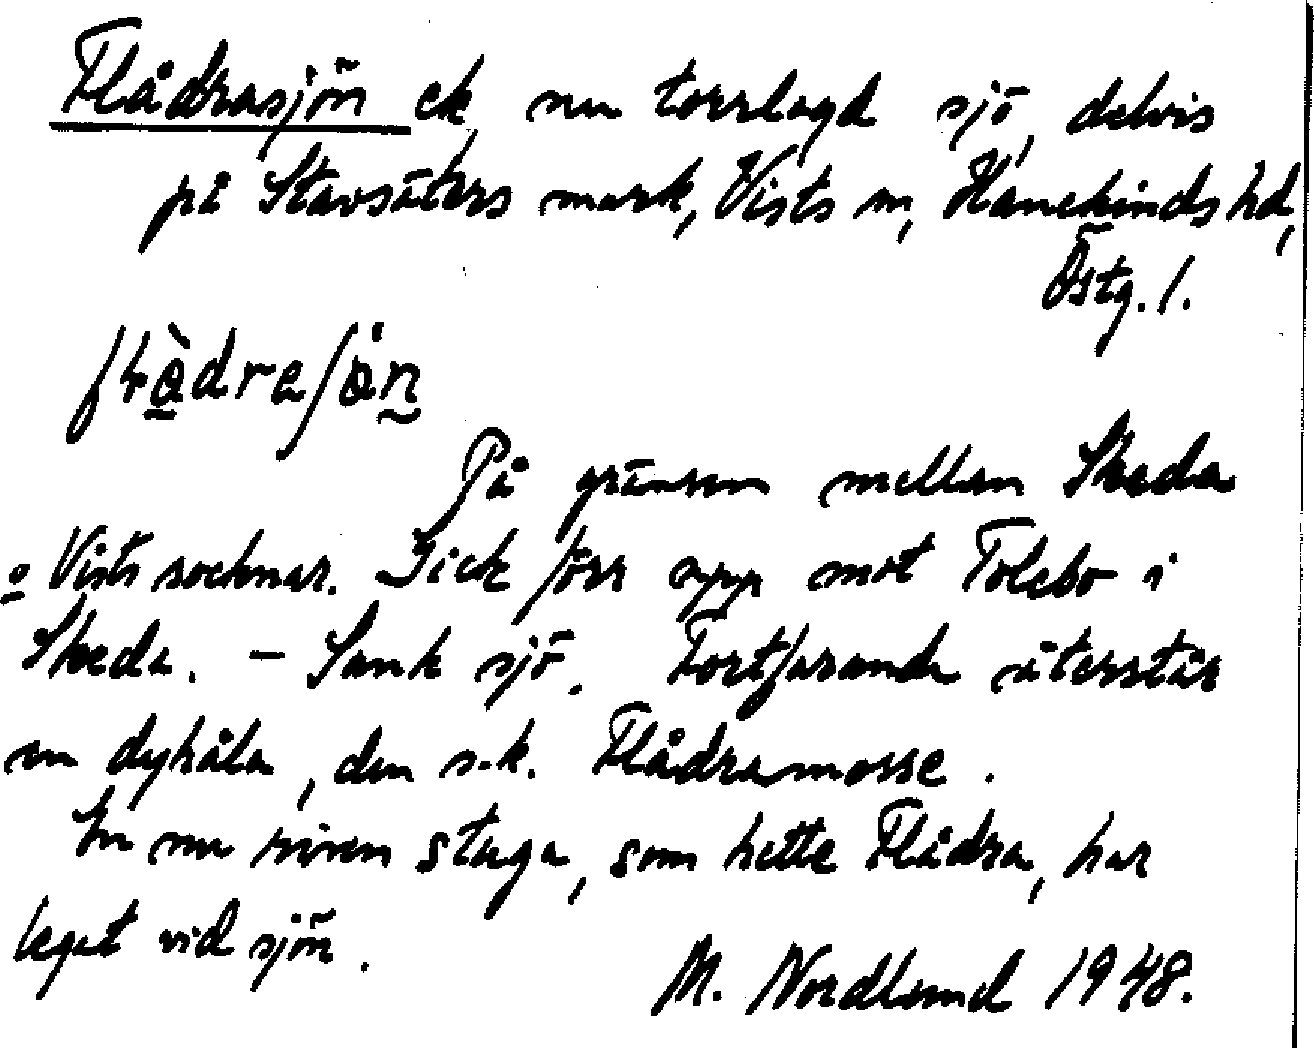 Flådrasjön ek, nu torrlagd sjö, delvis
på Stavsäters mark, Vists sn, Hanekinds hd,
Östg. l.
På gränsen mellan Skeda
o Vists socknar. Gick förr upp mot Tolebo i
Skeda. – Sank sjö. Fortfarande återstår
en dyhåla, den s.k. Flådramosse.
En nu riven stuga, som hette Flådra, har
legat vid sjön.
M. Nordlund 1948.